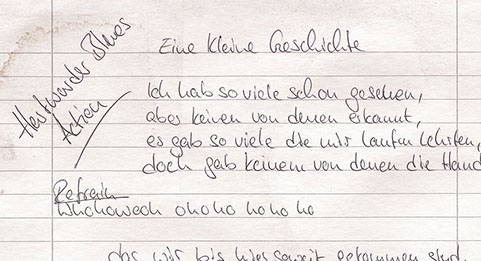 Eine kleine Geschichte
Blues
Action
Ich hab so viele schon gesehen,
aber keinen von denen erkannt,
es gab so viele die mir laufen lehrten,
doch gab keinem von denen die Hand
Refrain
Whohowooh ohoho hohoho
das wir bis hier soweit gekommen sind